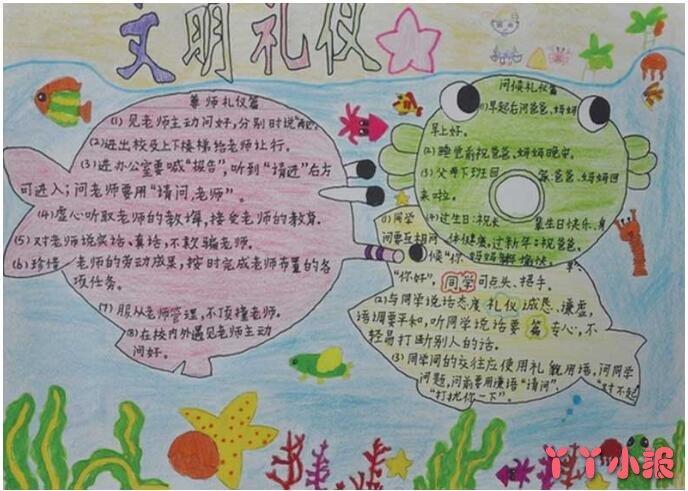 文明礼仪
尊师礼仪篇
(1) 见老师主动问好,分别时说
(2)进出校及上下楼梯给老师让行。
(3)进办公室要喊“报告”,听到“请进”后方
可进入;问老师要用“请问,老师”。
(4)虚心听取老师的教诲,接受老师的教育。
(5)对老师说实话、真话,不欺骗老师。
(6)珍惜老师的劳动成果,按时完成老师布置的各
项任务。
(7)服从老师管理,不顶撞老师。
(8)在校内外遇见老师主动
问好。
问候礼仪篇
(1)早起后问爸爸、妈妈
早上好。
(2)睡觉前祝爸爸、妈妈晚安。
(3)父母下班回 爸爸、妈妈回
来啦。
(4)过生日:祝 生日快乐、身
体健康,过新年:祝爸爸、
妈妈 愉快
同学礼仪篇
(1)同学
间要互相问
候“你
“你好”, 可点头、招手。
(2)与同学说话态度 诚恳、谦虚,
语调要平和,听同学说话要 专心,不
轻易打断别人的话。
(3)同学间的交往应使用礼貌用语,问同学
问题,问前要用谦语“请问”、“对不起
“打扰你一下”。
丫丫小报